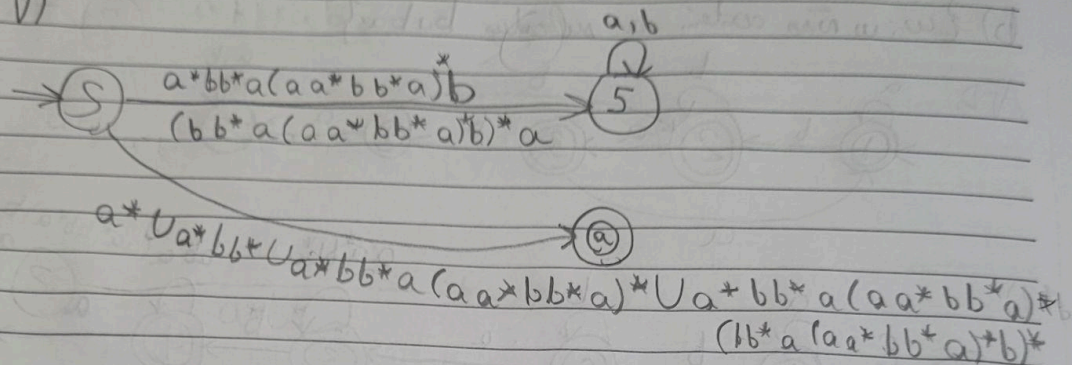 V)
a,b
S a*bb*a(aa*bb*a)*b 5
(bb*a(aa*bb*a)*b)*a
a
a* ∪ a*bb* ∪ a*bb*a(aa*bb*a)* ∪ a*bb*a(aa*bb*a)*b
(bb*a(aa*bb*a)*b)*